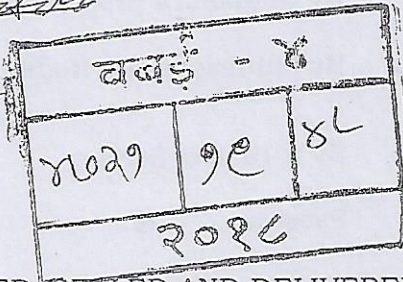 बबई - ४
४०२१ १९ ४८
२०१८
AND DELIVERED